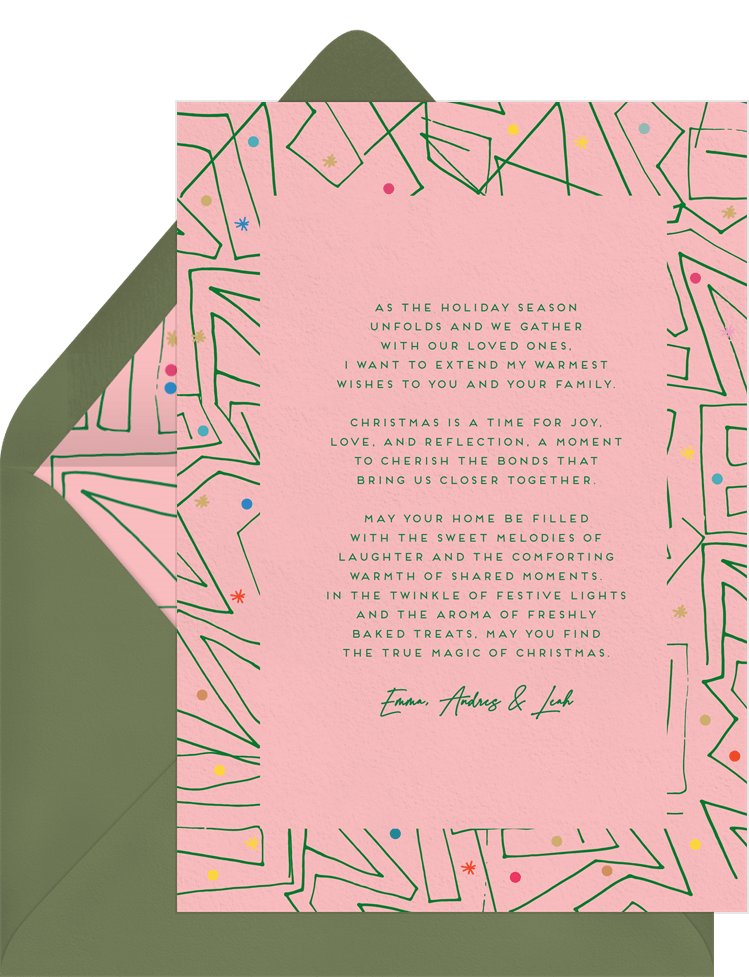 AS THE HOLIDAY SEASON
UNFOLDS AND WE GATHER
WITH OUR LOVED ONES,
I WANT TO EXTEND MY WARMEST
WISHES TO YOU AND YOUR FAMILY.
CHRISTMAS IS A TIME FOR JOY,
LOVE, AND REFLECTION, A MOMENT
TO CHERISH THE BONDS THAT
BRING US CLOSER TOGETHER.
MAY YOUR HOME BE FILLED
WITH THE SWEET MELODIES OF
LAUGHTER AND THE COMFORTING
WARMTH OF SHARED MOMENTS.
IN THE TWINKLE OF FESTIVE LIGHTS
AND THE AROMA OF FRESHLY
BAKED TREATS, MAY YOU FIND
THE TRUE MAGIC OF CHRISTMAS.
Emma, Andres & Leah